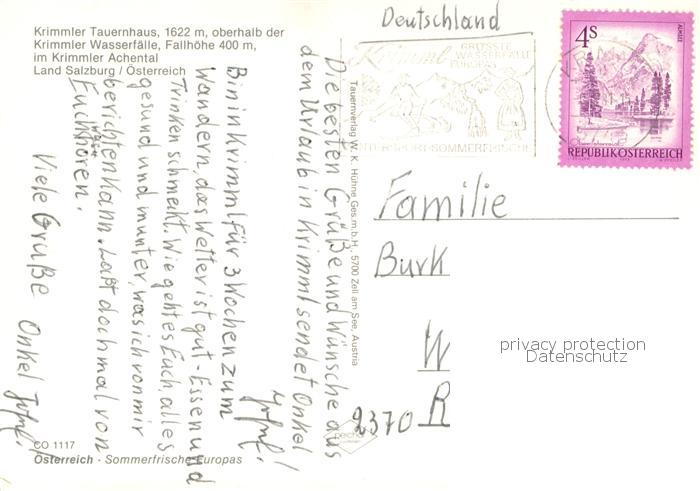 Krimmler Tauernhaus, 1622 m, oberhalb der
Krimmler Wasserfälle, Fallhöhe 400 m,
im Krimmler Achental
Land Salzburg / Österreich
Die besten Grüße und Wünsche aus
dem Urlaub in Krimml sendet Onkel
Bin in Krimml für 3 Wochen zum
Wandern, das Wetter ist gut - Essen und
Trinken schmeckt. Wie geht es Euch, alles
gesund und munter, was ich von mir
berichten kann. Laßt doch mal von
Euch was hören.
Viele Grüße Onkel
CO 1117
Österreich - Sommerfrische Europas
Tauernverlag W. K. Hühne Ges.m.b.H., 5700 Zell am See, Austria
Deutschland
Krimml GRÖSSTE
WASSERFÄLLE
EUROPAS
WINTERSPORT-SOMMERFRISCHE
4S
ALMSEE
REPUBLIK ÖSTERREICH
Familie
Burk
W
2370 R
privacy protection
Datenschutz